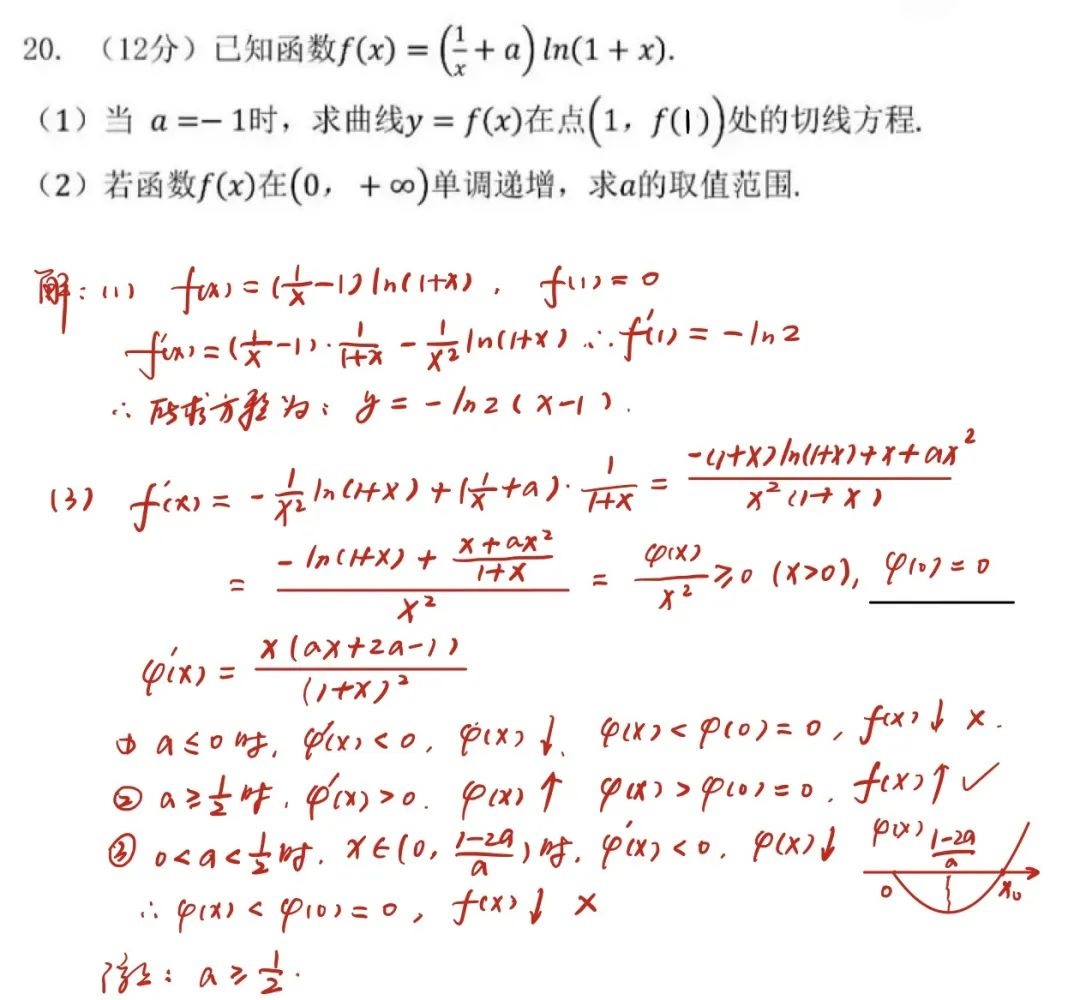 20. （12分）已知函数f(x) = (1/x + a) ln(1 + x).
（1）当 a =− 1时，求曲线y = f(x)在点(1，f(1))处的切线方程.
（2）若函数f(x)在(0，+∞)单调递增，求a的取值范围.
解：(1) f(x) = (1/x − 1) ln(1+x)， f(1) = 0
f′(x) = (1/x − 1)·1/(1+x) − 1/x² ln(1+x) ∴ f′(1) = −ln2
∴ 所求方程为：y = −ln2(x−1).
(3) f′(x) = −1/x² ln(1+x) + (1/x + a)·1/(1+x) = (−(1+x)ln(1+x)+x+ax²)/(x²(1+x))
= (−ln(1+x) + (x+ax²)/(1+x))/x² = φ(x)/x² ≥ 0 (x>0)， φ(0) = 0
φ′(x) = x(ax+2a−1)/(1+x)²
① a ≤ 0时，φ′(x) < 0，φ(x)↓，φ(x) < φ(0) = 0，f(x)↓ ×.
② a ≥ 1/2时，φ′(x) > 0. φ(x)↑ φ(x) > φ(0) = 0. f(x)↑ ✓
③ 0 < a < 1/2时，x∈(0, (1−2a)/a)时，φ′(x) < 0，φ(x)↓
φ(x) (1−2a)/a
0 x₀
∴ φ(x) < φ(0) = 0，f(x)↓ ×
综上：a ≥ 1/2.